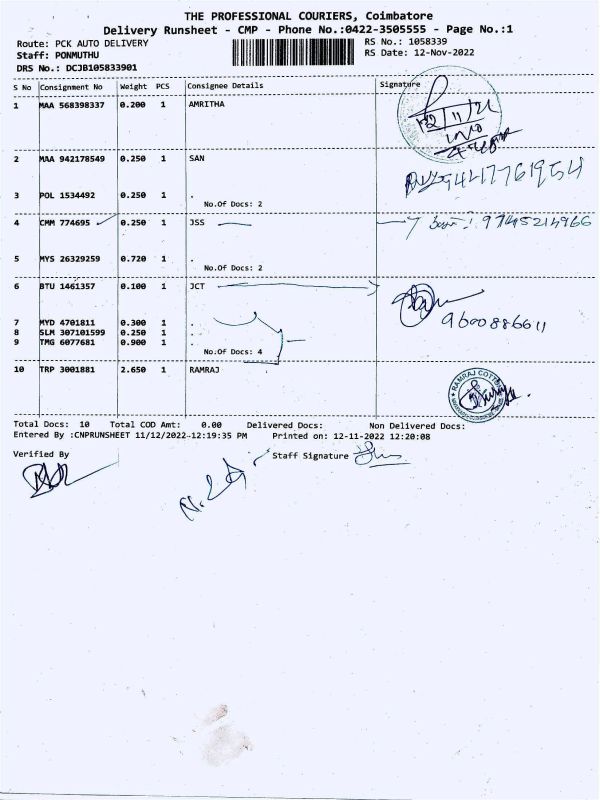 THE PROFESSIONAL COURIERS, Coimbatore
Delivery Runsheet - CMP - Phone No.:0422-3505555 - Page No.:1
Route: PCK AUTO DELIVERY
RS No.: 1058339
Staff: PONMUTHU
RS Date: 12-Nov-2022
DRS No.: DCJB105833901
S No Consignment No Weight PCS Consignee Details Signature
1 MAA 568398337 0.200 1 AMRITHA
12/11/22
2 MAA 942178549 0.250 1 SAN
9417761954
3 POL 1534492 0.250 1 .
No.Of Docs: 2
4 CMM 774695 0.250 1 JSS 9745214966
5 MYS 26329259 0.720 1 .
No.Of Docs: 2
6 BTU 1461357 0.100 1 JCT
9600886611
7 MYD 4701811 0.300 1 .
8 SLM 307101599 0.250 1 .
9 TMG 6077681 0.900 1 .
No.Of Docs: 4
10 TRP 3001881 2.650 1 RAMRAJ
RAMRAJ COTTON
Total Docs: 10 Total COD Amt: 0.00 Delivered Docs: Non Delivered Docs:
Entered By :CNPRUNSHEET 11/12/2022-12:19:35 PM Printed on: 12-11-2022 12:20:08
Verified By
Staff Signature